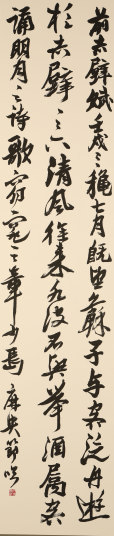 前赤壁賦壬戌之穐七月既望蘇子与客泛舟遊
於赤壁之下清風徐来水波不興举酒属客
誦明月之詩歌窈窕之章少焉